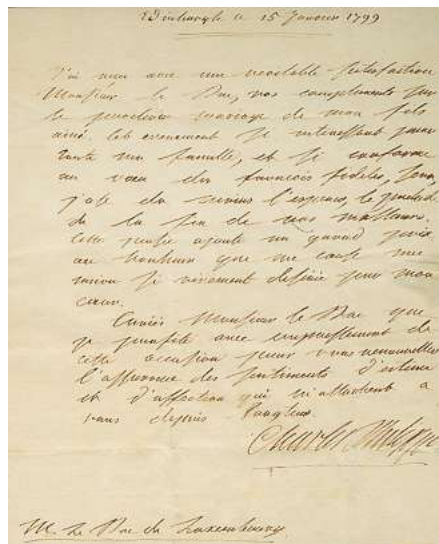 Edinburgh le 15 Janvier 1799
J'ai reçu avec une véritable satisfaction
Monsieur le Duc, vos compliments sur
le prochain mariage de mon fils
ainé. Cet evenement si interessant pour
toute ma famille, et si conforme
au voeu des francois fideles,
j'ose du moins l'esperer, le
de la fin de nos malheurs.
Cette ajoute un grand prix
au bonheur que me cause une
union si vivement desirée par mon
coeur.
Croiés Monsieur le Duc que
je profite avec empressement de
cette occasion pour vous renouveller
l'assurance des sentiments d'estime
et d'affection qui m'attachent a
vous depuis longtems.
Charles Philippe
M. le Duc de Luxembourg